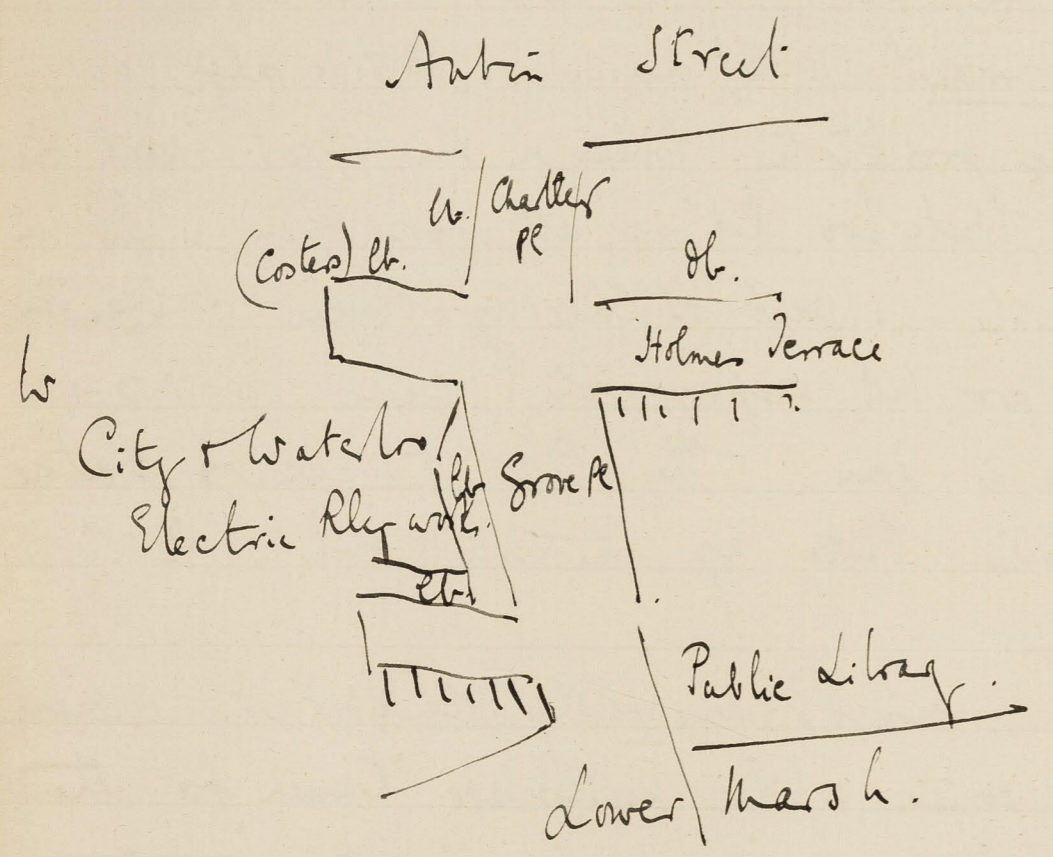 Aubin Street
Chatteris
Pl
(Costers) lb.
lb.
Holmes Terrace
City & Waterloo
Electric Rly works.
lb
Grove Pl
lb.
Public Library.
Lower Marsh.